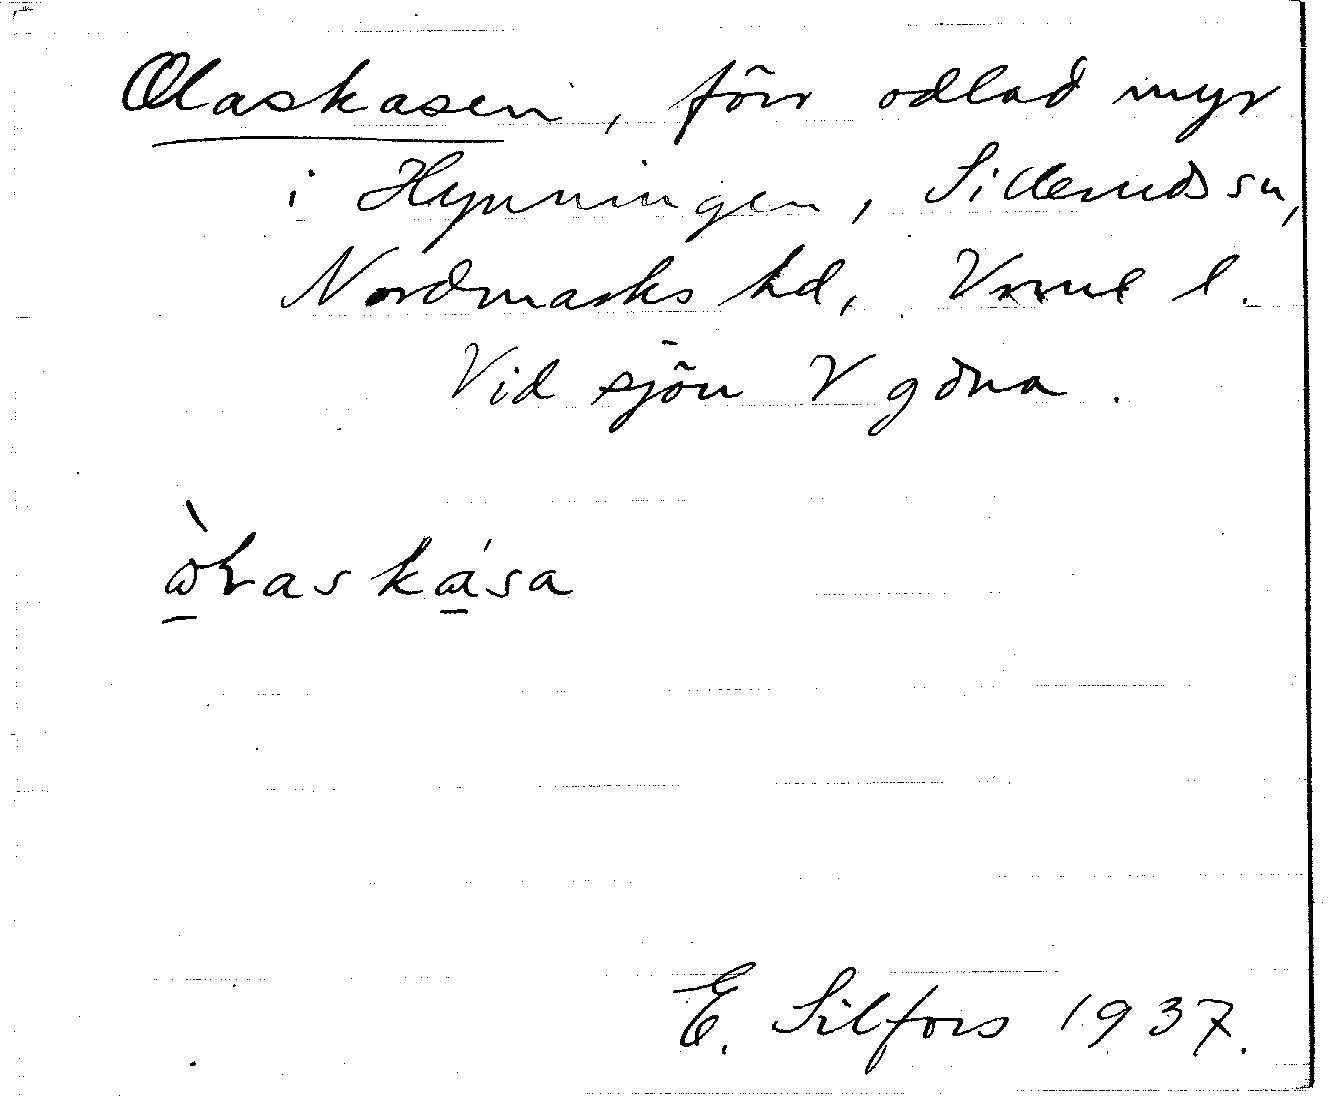 Olaskasen, förr odlad myr
i Hynningen, Sillerudssn,
Nordmarks hd, Vrml l.
Vid sjön V
òɽaskása
E. Silfors 1937.